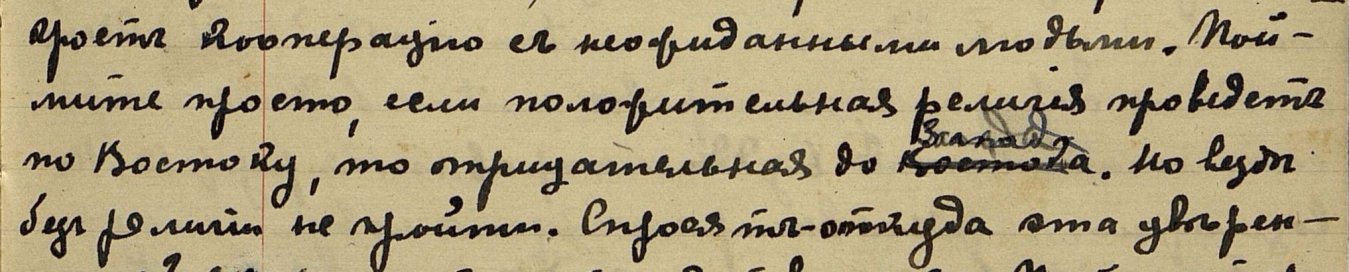 кооперацию съ неожиданными людьми. Пой-
мите просто, если положительная религiя проведетъ
по Востоку, то отрицательная до Востока. Но вездѣ
безъ религiи не пройти. Спросятъ-откуда эта увѣрен-